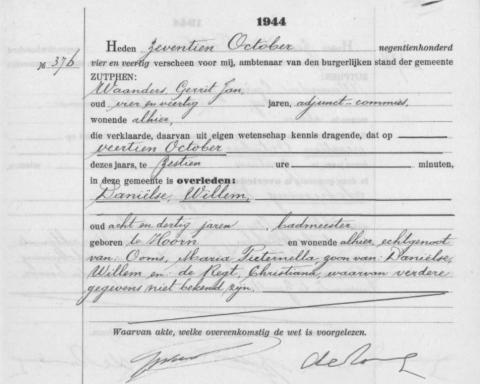 1944
Heden zeventien October negentienhonderd
No. 376 vier en veertig verscheen voor mij, ambtenaar van den burgerlijken stand der gemeente
ZUTPHEN:
Waanders, Gerrit Jan,
oud vier en veertig jaren, adjunct-commies,
wonende alhier,
die verklaarde, daarvan uit eigen wetenschap kennis dragende, dat op
veertien October
dezes jaars, te zestien ure minuten,
in deze gemeente is overleden:
Daniëlse, Willem,
oud acht en dertig jaren, badmeester,
geboren te Hoorn en wonende alhier, echtgenoot
van Ooms, Maria Pieternella, zoon van Daniëlse,
Willem en de Regt, Christiana, waarvan verdere
gegevens niet bekend zijn.
Waarvan akte, welke overeenkomstig de wet is voorgelezen.